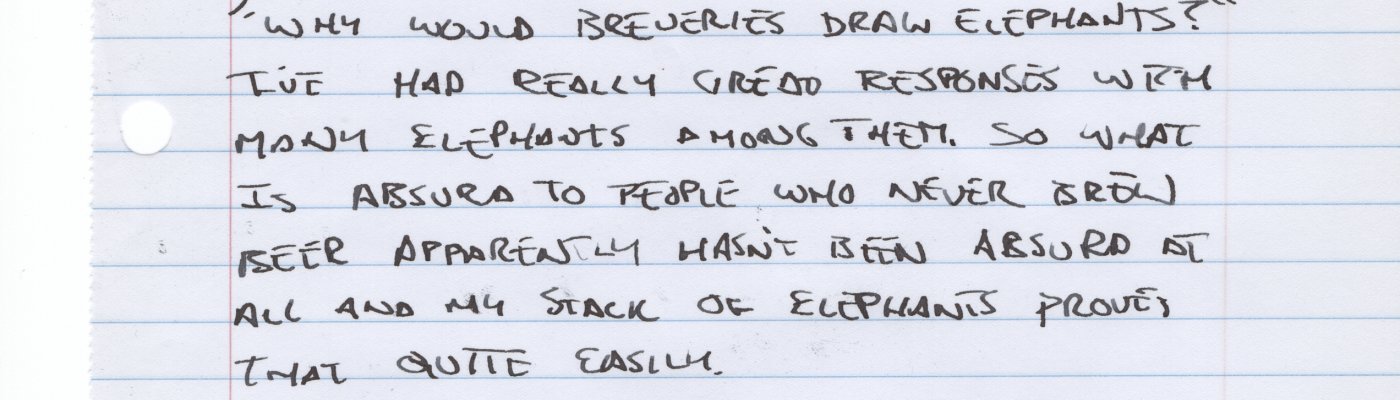 "WHY WOULD BREWERIES DRAW ELEPHANTS?"
I'VE HAD REALLY GREAD RESPONSES WITH
MANY ELEPHANTS AMONG THEM. SO WHAT
IS ABSURD TO PEOPLE WHO NEVER BREW
BEER APPARENTLY HASN'T BEEN ABSURD AT
ALL AND MY STACK OF ELEPHANTS PROVES
THAT QUITE EASILY.